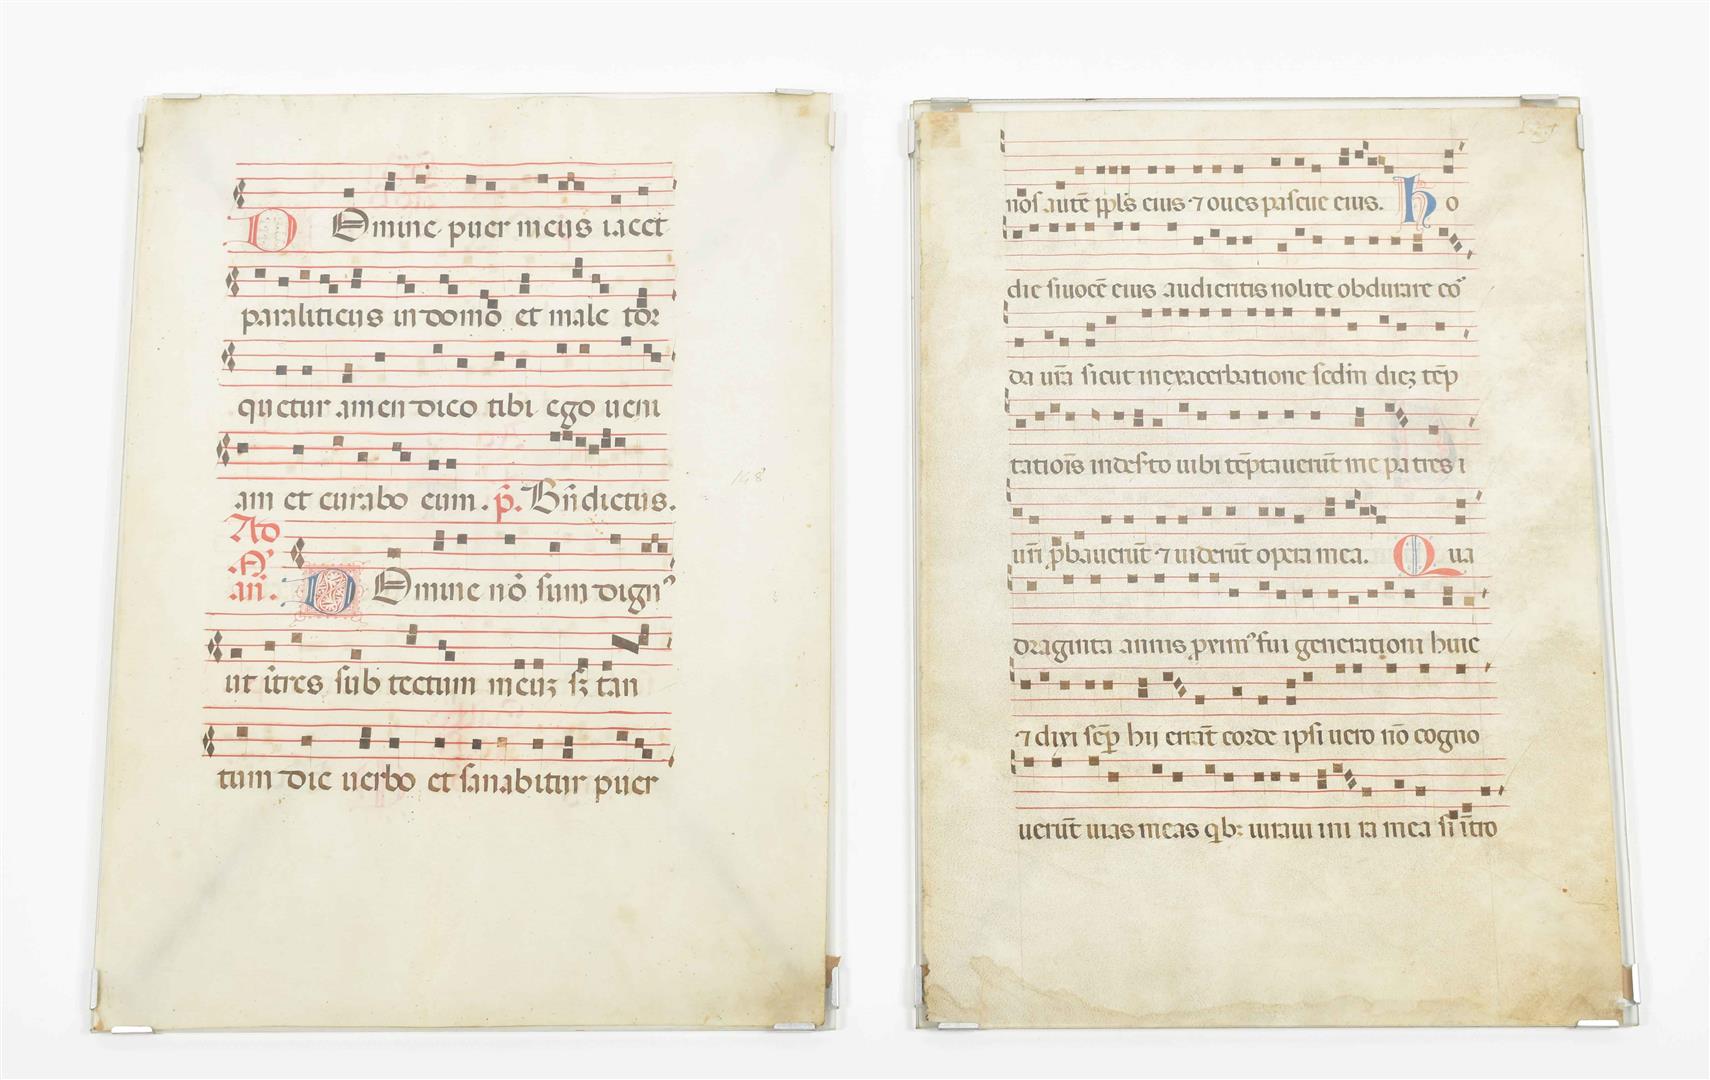 Domine puer meus iacet
paraliticus in domo et male tor
quetur amen dico tibi ego veni
am et curabo eum. p̄. Bn̄dictus.
Ad
M̄
an̄.
Domine nō sum dignꝰ
ut ītres sub tectum meuꝫ sꝫ tan
tum dic verbo et sanabitur puer
148
nos autē ppl̄s eius ⁊ oves pascue eius. Ho
die si vocē eius audieritis nolite obdurare co
da vr̄a sicut in exacerbatione sedm̄ dieꝫ tēp
tatiōis in deserto ubi tēptaverūt me patres v
rī ꝓbaverūt ⁊ viderūt opera mea. Qua
draginta annis proximꝰ fui generationi huic
⁊ dixi sēp hii errāt corde ipsi vero nō cogno
verūt vias meas qbꝫ iuravi in ira mea si ītro